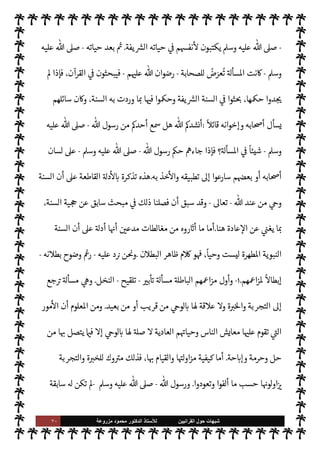 - صلى الله عليه وسلم يكتبون لأنفسهم في حياته الشريفة. ثم بعد حياته - صلى الله عليه
وسلم - كانت المسألة تُعرَضُ للصحابة - رضوان الله عليهم - فيبحثون في القرآن، فإذا لم
يجدوا حكمها، بحثوا في السنة الشريفة وحكموا فيها بما وردت به السنة. وكان سائلهم
يسأل أصحابه وإخوانه قائلاً :أنشدكم الله هل سمع أحدكم من رسول الله - صلى الله عليه
وسلم - شيئاً في المسألة؟ فإذا جاءهم حكم رسول الله - صلى الله عليه وسلم - على لسان
أصحابه أو بعضهم سارعوا إلى تطبيقه والأخذ به.هذه تذكرة بالأدلة القاطعة على أن السنة
وحي من عند الله - تعالى - وقد سبق أن فصلنا ذلك في مبحث سابق عن حجية السنة،
بما يغني عن الإعادة هنا.أما ما أثاروه من مغالطات مدعين أنها أدلة على أن السنة
النبوية المطهرة ليست وحياً، فهو كلام ظاهر البطلان .ونحن نرد عليه - رغم وضوح بطلانه -
إبطالاً لمزاعمهم.١- وأول مزاعمهم الباطلة مسألة تأبير - تلقيح - النخل. وهي مسألة ترجع
إلى التجربة والخبرة ولا علاقة لها بالوحي من قريب أو من بعيد. ومن المعلوم أن الأمور
التي تقوم عليها معايش الناس وحياتهم العادية لا صلة لها بالوحي إلا فيما يتصل بها من
حل وحرمة وإباحة. أما كيفية مزاولتها والقيام بها، فذلك متروك للخبرة والتجربة
يزاولونها حسب ما ألفوا وتعودوا. ورسول الله - صلى الله عليه وسلم -لم تكن له سابقة
شبهات حول القرآنيين للأستاذ الدكتور محمود مزروعة ٢٠